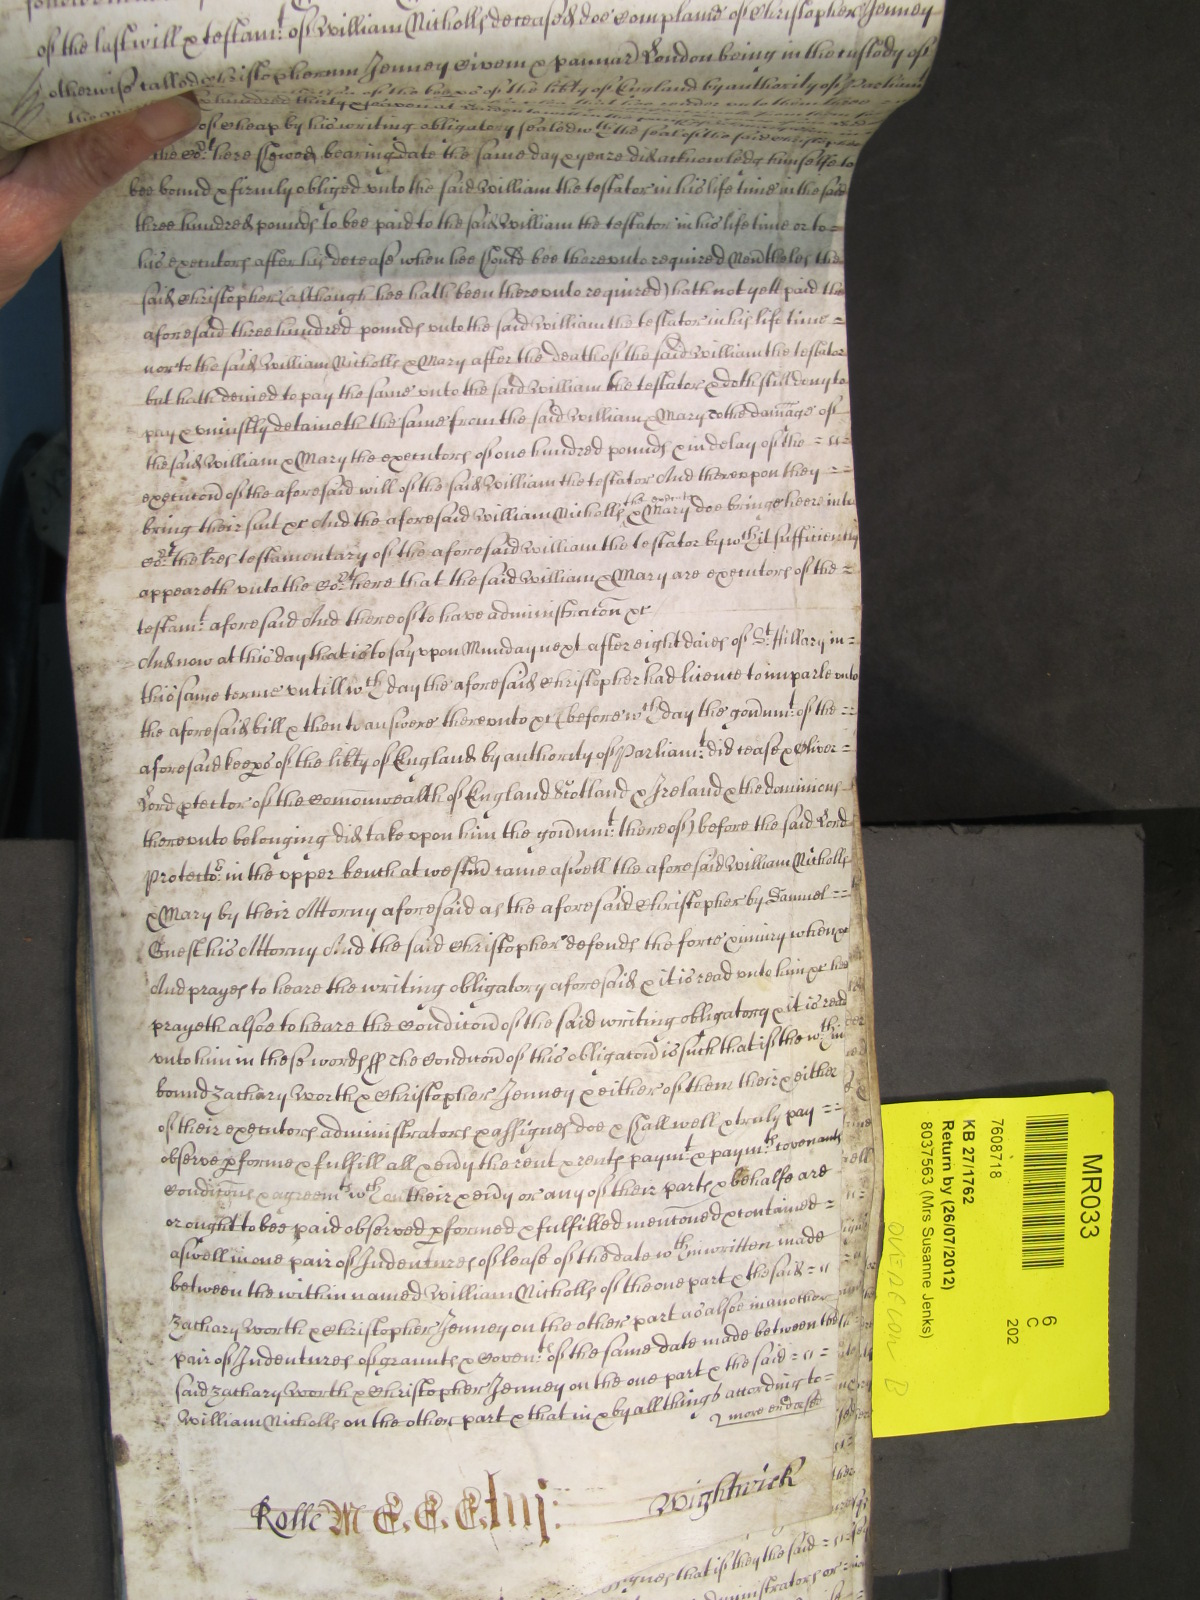 of the last will & testamt. of William Nicholls deceased doe complaine of Christopher Jenney
otherwise called Christopherum Jenney Civem & pannar London being in the custody of
hundred thirty & seaven at
of Cheap by his writing obligatory sealed wth the seal of the said Christopher
the Cort. here shewed bearing date the same day & yeare did acknowledg himselfe to
bee bound & firmly obliged unto the said William the testator in his life time in the said
three hundred pounds to bee paid to the said William the testator in his life time or to =
his executors after his decease when hee should bee thereunto required Nevertheles the
said Christopher (although hee hath been thereunto required) hath not yett paid the
aforesaid three hundred pounds unto the said William the testator in his life time =
nor to the said William Nicholls & Mary after the death of the said William the testator
but hath denied to pay the same unto the said William the testator & doth still deny to
pay & uniustly detaineth the same from the said William & Mary to the damage of
the said William & Mary the executors of one hundred pounds & in delay of the = =
execucon of the aforesaid will of the said William the testator And thereupon they = =
bring their suit &c And the aforesaid William Nicholls & Mary the executors doe bringe heere into
Cort. the lres testamentary of the aforesaid William the testator by wch it sufficiently
appeareth unto the Cort. here that the said William & Mary are executors of the =
testamt. aforesaid And thereof to have administracon &c
And now at this day that is to say upon Munday next after eight daies of St. Hillary in =
this same terme untill wch day the aforesaid Christopher had licence to imparle unto
the aforesaid bill & then to answere thereunto &c (before wch day the govnmt. of the = =
aforesaid keeps of the libty of England by authority of Parliamt. did cease & Oliver =
Lord ptector of the Comonwealth of England Scotland & Ireland & the dominions
thereunto belonging did take upon him the govnmt. thereof) before the said Lord
Protector. in the upper bench at Westm came aswell the aforesaid William Nicholls
& Mary by their Attorny aforesaid as the aforesaid Christopher by Samuel = =
Guest his Attorny And the said Christopher defends the force & iniury when &c
And prayes to heare the writing obligatory aforesaid & it is read unto him &c hee
prayeth alsoe to heare the Condicon of the said writing obligatory & it is read
unto him in these words ff The Condicon of this obligacon is such that if the wthin
bound Zachary Worth & Christopher Jenney & either of them their & either
of their executors administrators & assignes doe & shall well & truly pay = =
observe pforme & fulfill all & evy the rent & rents paymt & paymts covenants
Condicons & agreemts wch on their & evy or any of their parts & behalfe are
or ought to bee paid observed pformed & fulfilled menconed & contained =
aswell in one pair of Indentures of lease of the date wthin written made
between the within named William Nicholls of the one part & the said =
Zachary Worth & Christopher Jenney on the other part as alsoe in another
pair of Indentures of graunts & Covents of the same date made between the
said Zachary Worth & Christopher Jenney on the one part & the said = =
William Nicholls on the other part & that in & by all things according to =
2 more endorsed
Rolle M CCCC iiij: Wightwick
signes that if they the said =
administrators or =
MR033
6
C
202
7608718
KB 27/1762
Return by (26/07/2012)
8037563 (Mrs Susanne Jenks)